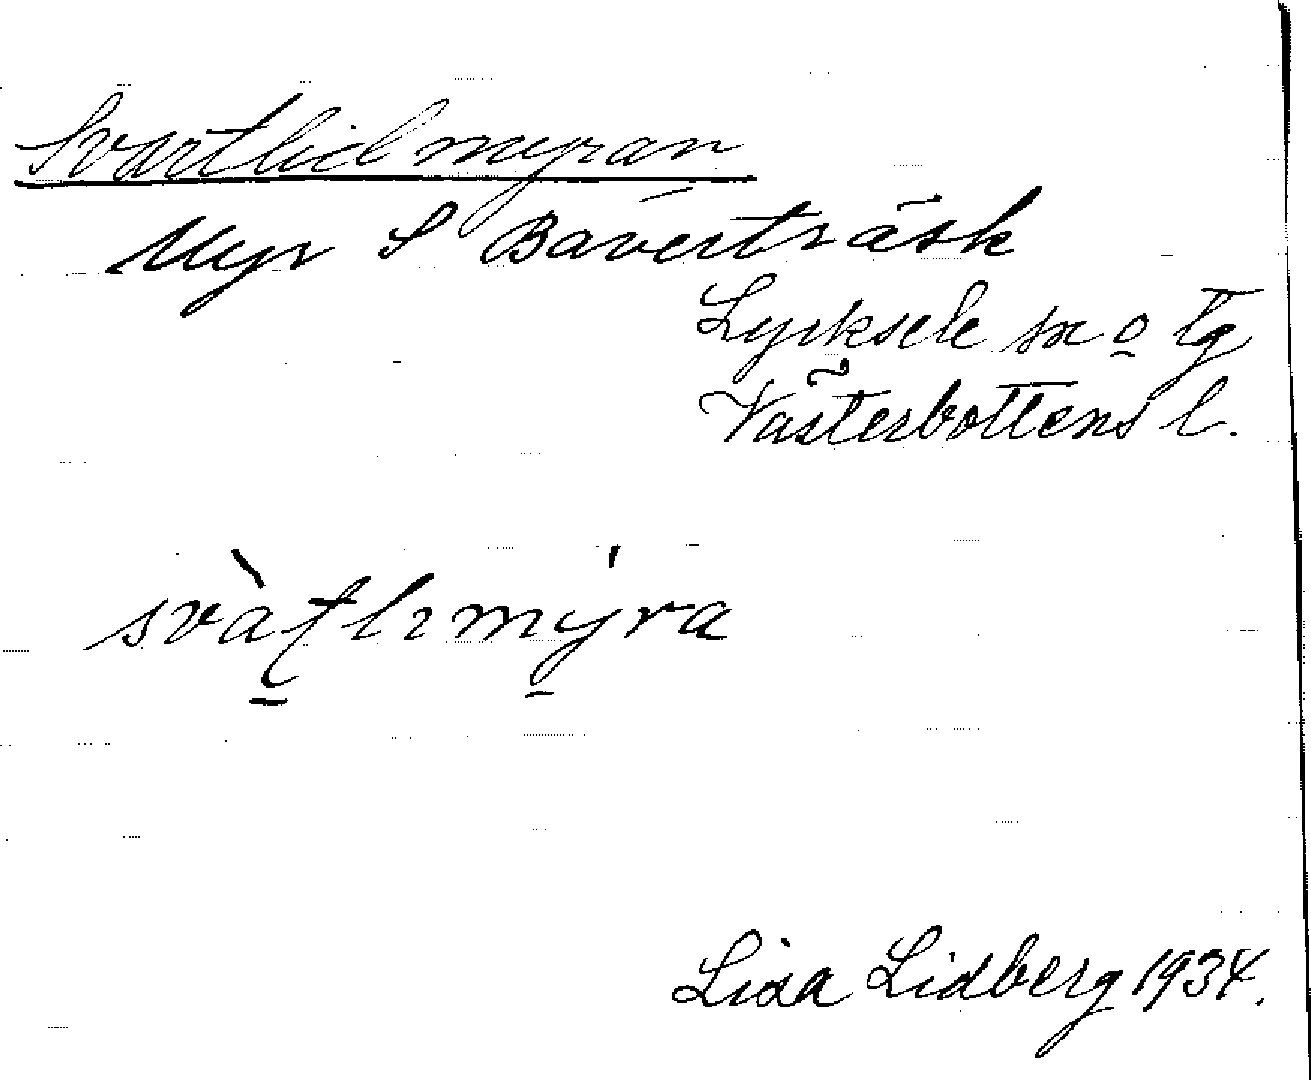 Svartlidmyran
Myr S Bäverträsk
Lycksele sn o tg
Västerbottens l.
svàʈlımýra
Lisa Lidberg 1934.